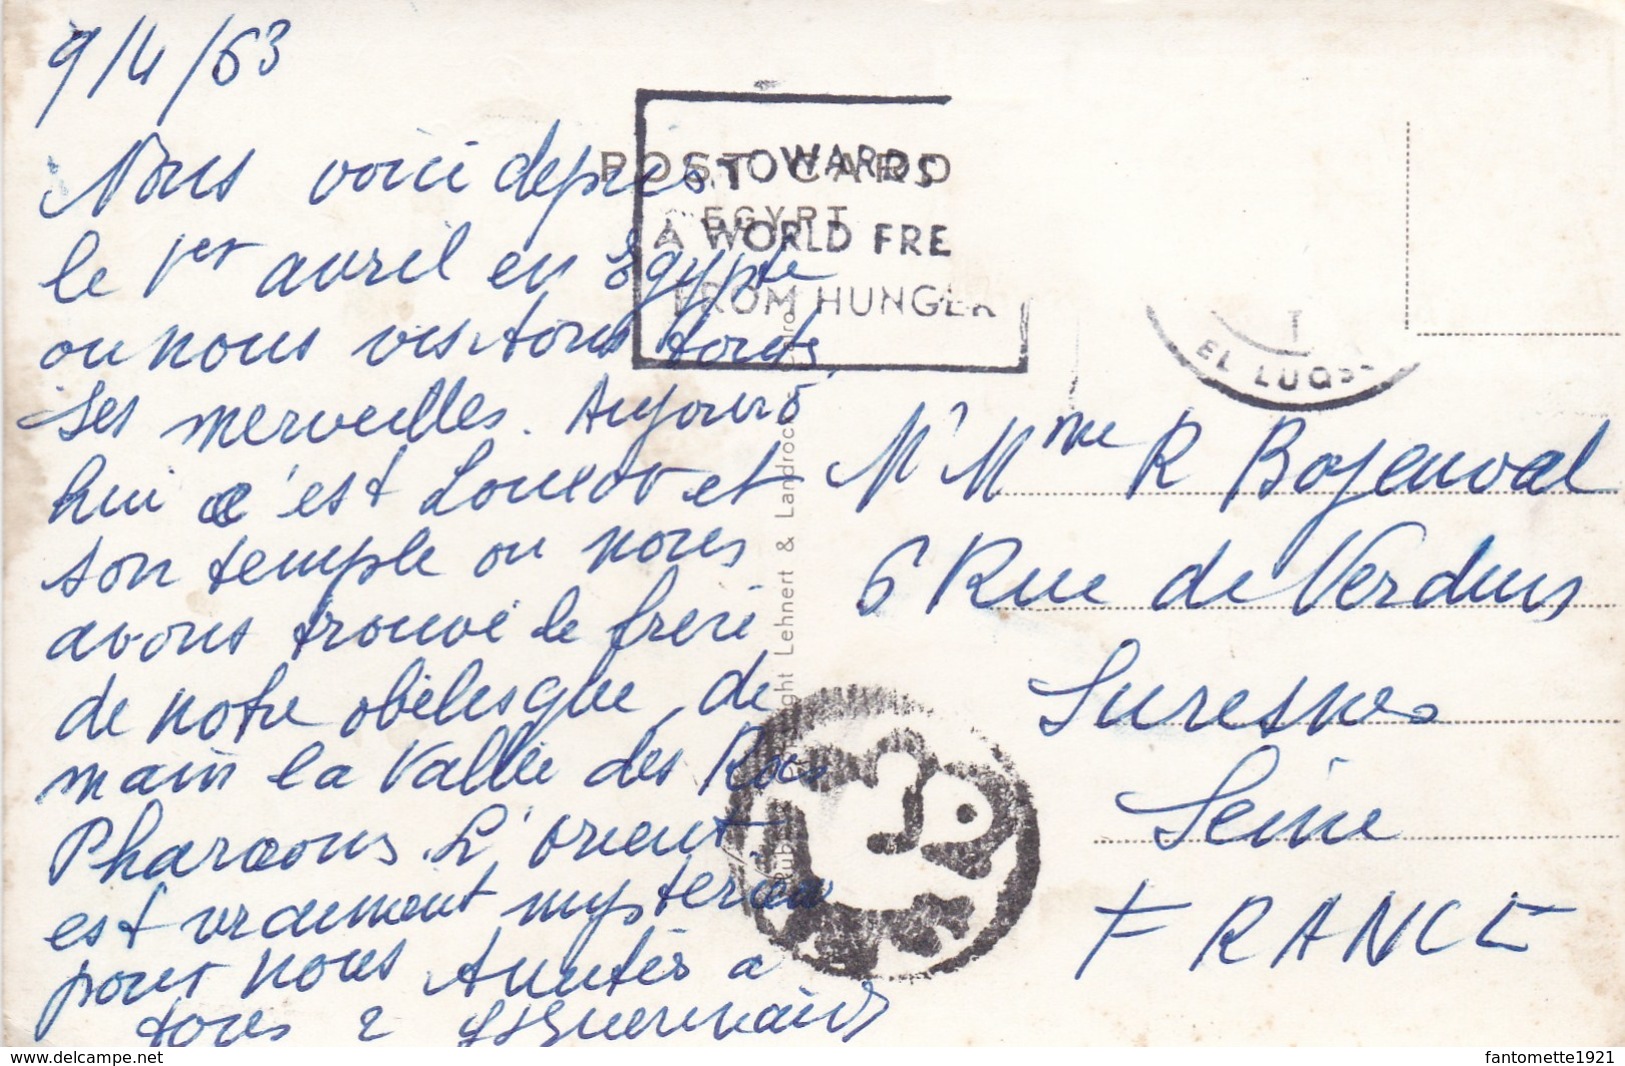 9/4/63
Nous voici depuis
le 1er avril en Egypte
ou nous visitons toutes
ses merveilles. Aujourd
hui c'est Louxor et
son temple ou nous
avons trouvé le frère
de notre obélisque, de
main la Vallée des Rois
Pharaons. L'orient
est vraiment mystérieux
pour nous Amitiés à
tous 2
POST CARD
EGYPT
TOWARDS
A WORLD FRE
FROM HUNGER
EL LUQS
ght Lehnert & Landrock
M. Mme R Bajenval
6 Rue de Verdun
Suresnes
Seine
FRANCE
www.delcampe.net
fantomette1921